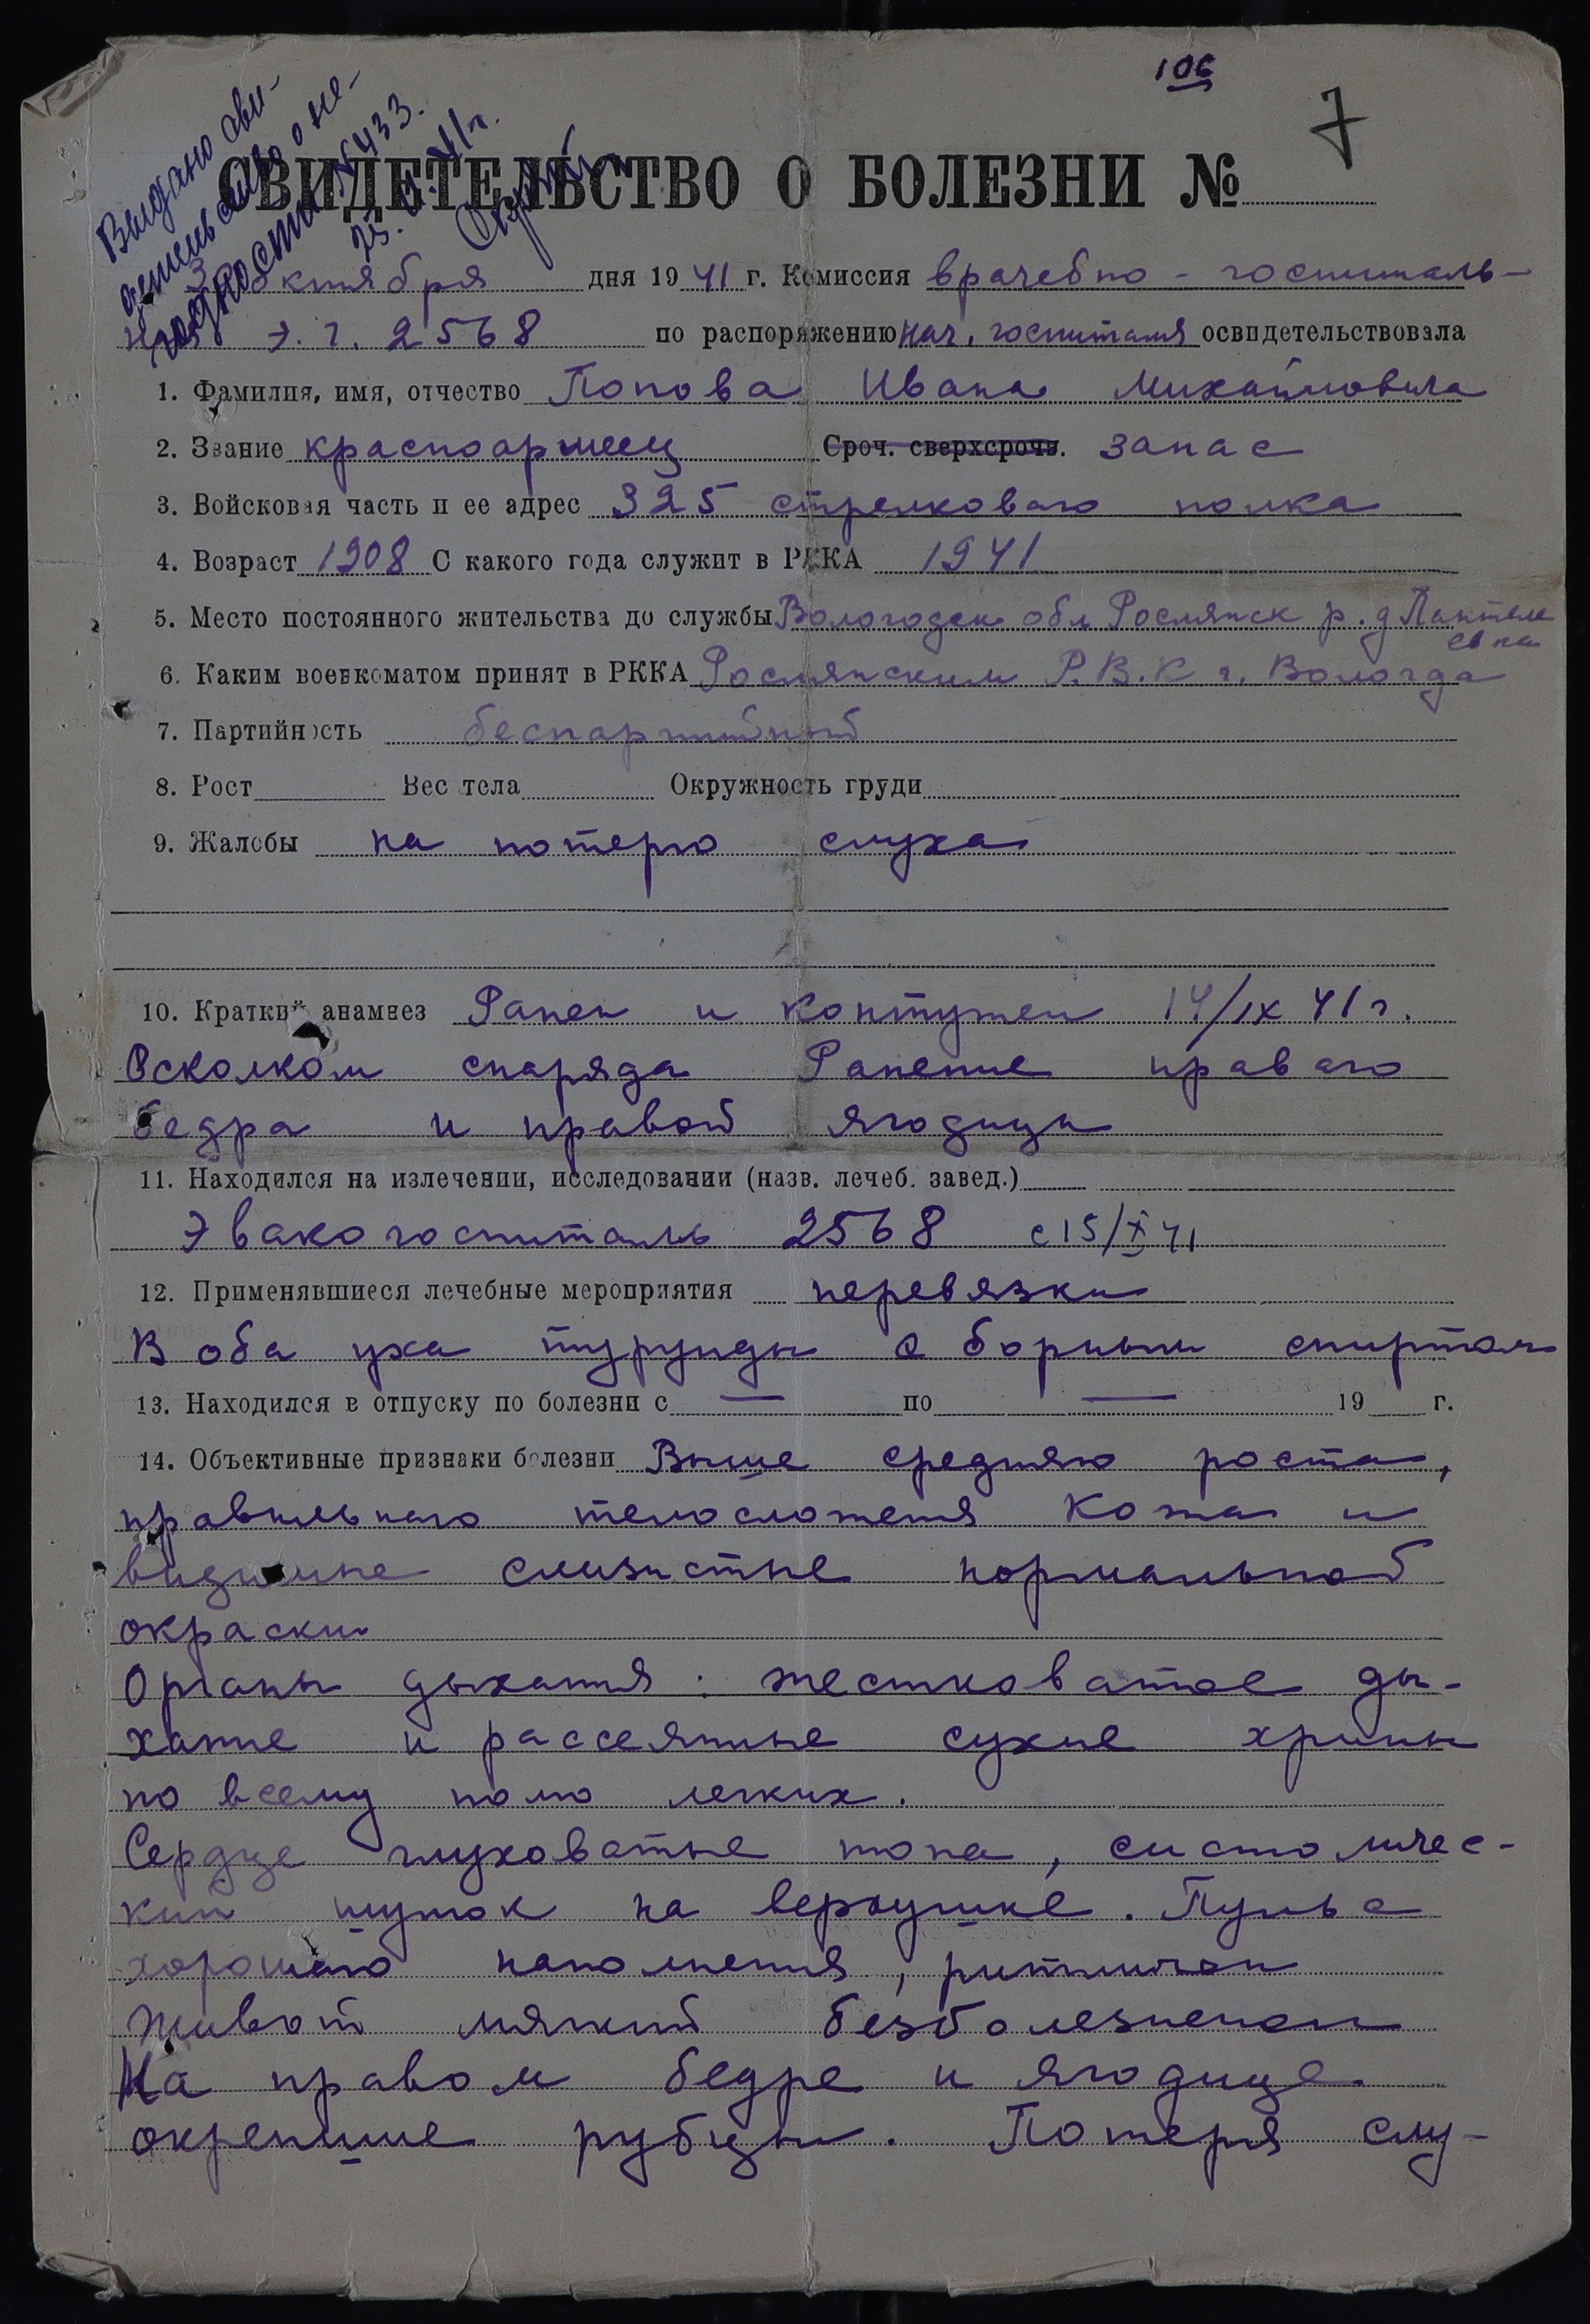 106
7
Выдано сви-
детельство о не-
годности №433.
25.XI.41г.
СВИДЕТЕЛЬСТВО О БОЛЕЗНИ №
октября дня 1941 г. Комиссия врачебно - госпиталь-
ная э.г. 2568 по распоряжению нач. госпиталя освидетельствовала
1. Фамилия, имя, отчество Попова Ивана Михайловича
2. Звание красноармеец Сроч. сверхсрочн. запас
3. Войсковая часть и ее адрес 325 стрелкового полка
4. Возраст 1908 С какого года служит в РККА 1941
5. Место постоянного жительства до службы Вологодск обл Рослятск р. д Пантеле
евка
6. Каким военкоматом принят в РККА Рослятским Р.В.К г. Вологда
7. Партийность беспартийный
8. Рост Вес тела Окружность груди
9. Жалобы на потерю слуха
10. Краткий анамнез Ранен и контужен 14/IX 41 г.
Осколком снаряда Ранение правого
бедра и правой ягодицы
11. Находился на излечении, исследовании (назв. лечеб. завед.)
Эвакогоспиталь 2568 с 15/X 41
12. Применявшиеся лечебные мероприятия перевязки
В оба уха турунды с борным спиртом
13. Находился в отпуску по болезни с — по — 19 г.
14. Объективные признаки болезни Выше средняго роста,
правильнаго телосложения Кожа и
видимые слизистые нормальной
окраски
Органы дыхания : жестковатое ды-
хание и рассеянные сухие хрипы
по всему полю легких.
Сердце глуховатые тона, систоличес-
кий шумок на верхушке. Пульс
хорошего наполнения, ритмичен
Живот мягкий безболезненен
На правом бедре и ягодице
окрепшие рубцы. Потеря слу-